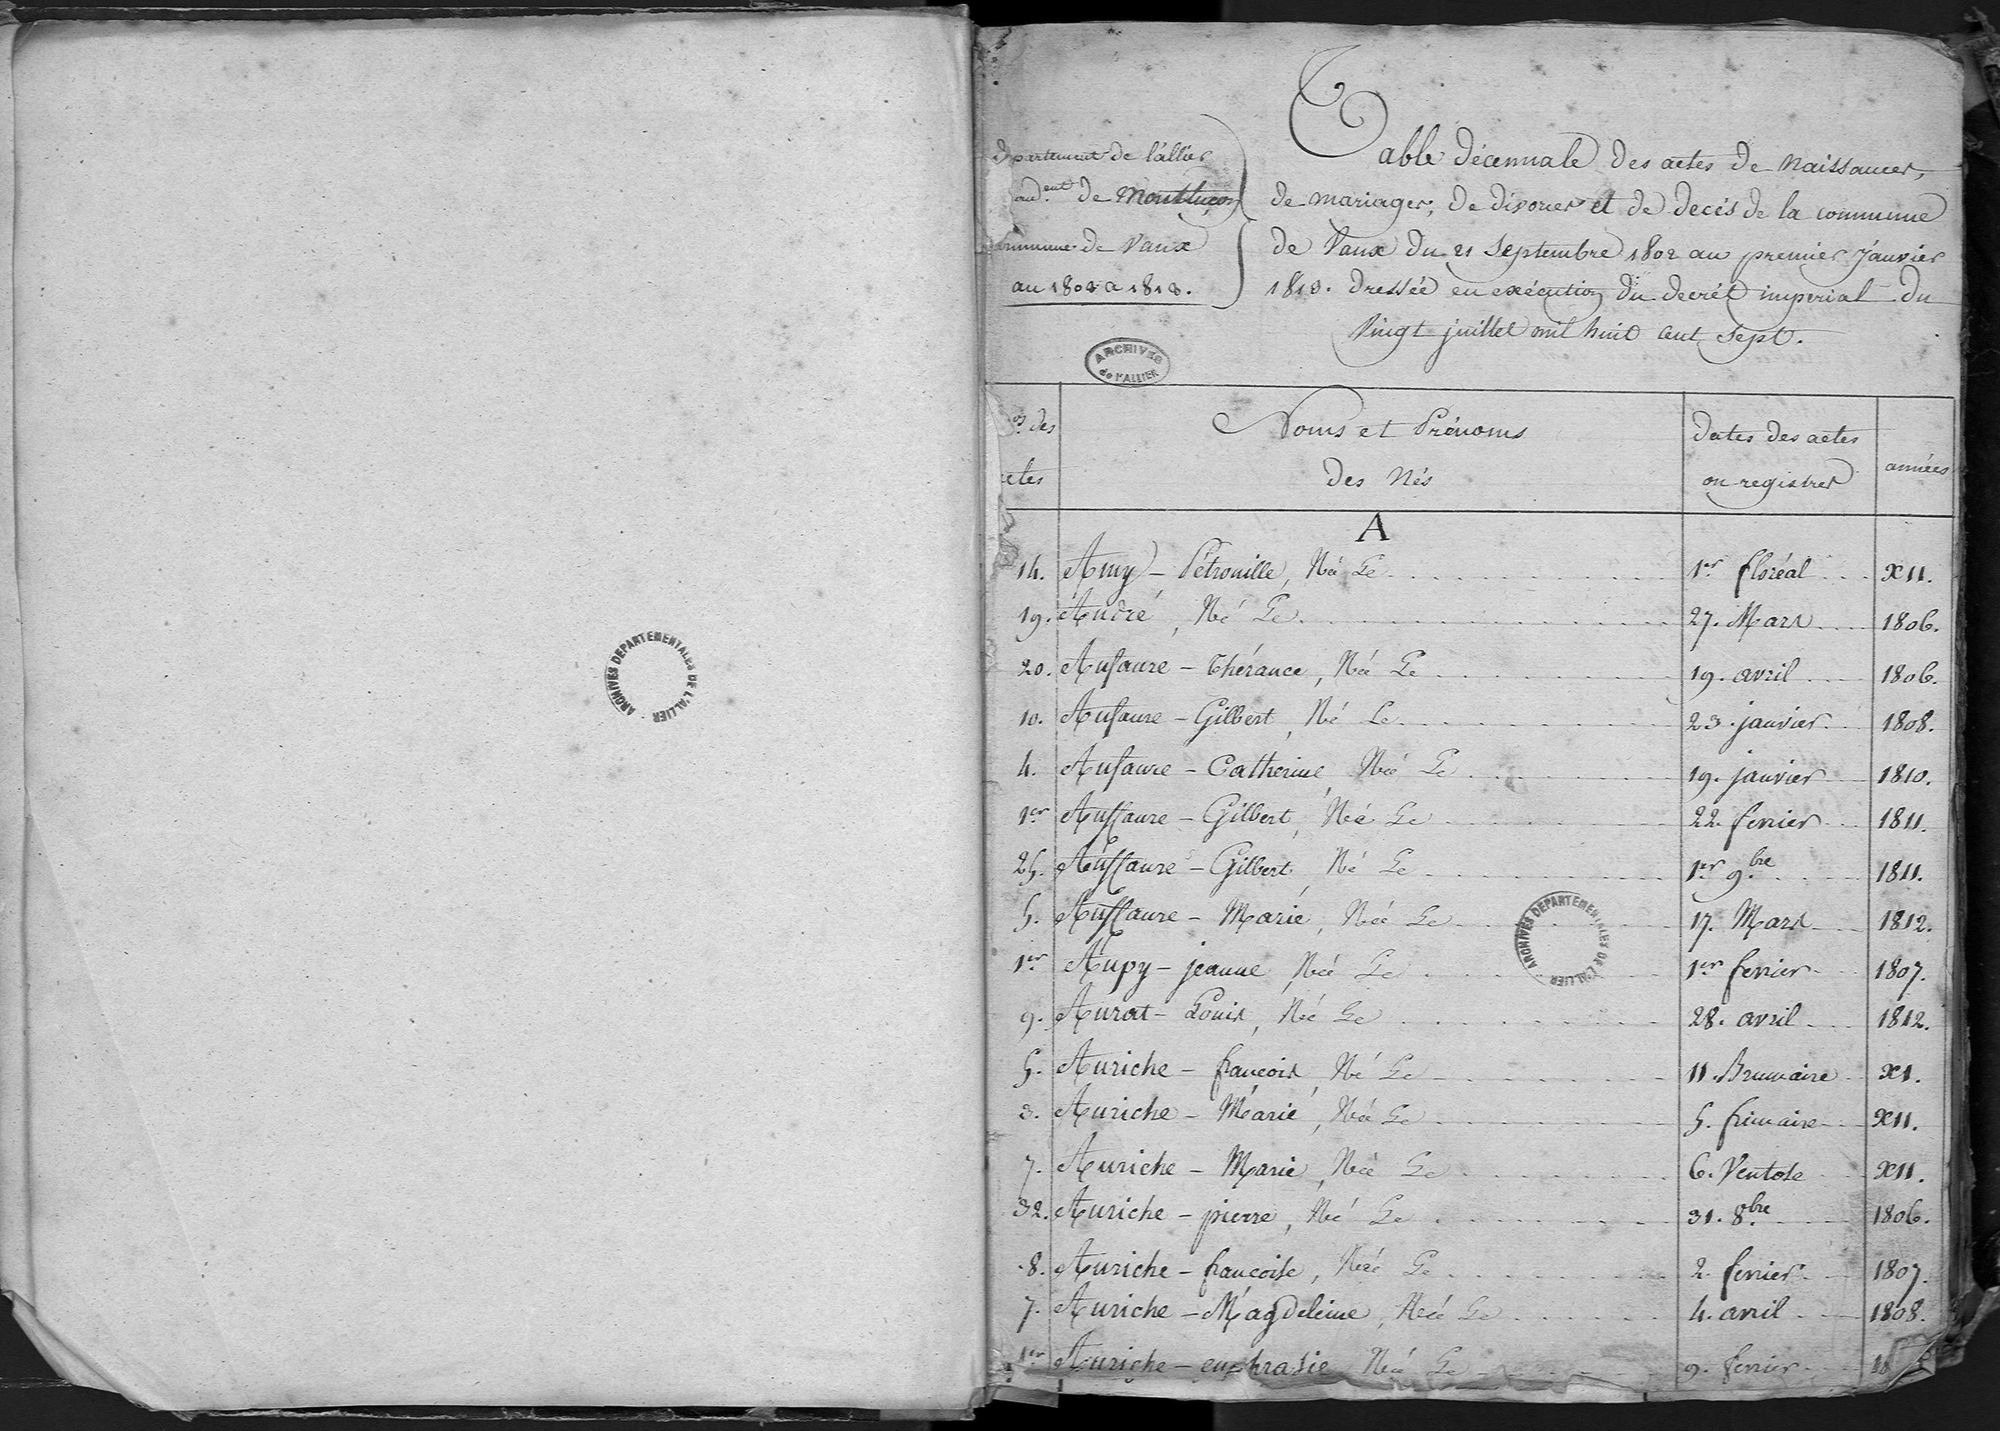 ARCHIVES DEPARTEMENTALES DE L'ALLIER
Département de l'allier
de Montluçon
Commune de Vaux
an 1802 a 1813.
Table décennale des actes de Naissances,
de mariages, de divorces et de decés de la commune
de Vaux du 21 Septembre 1802 au premier Janvier
1813. dressée en exécution du decrét imperial du
Vingt juillet mil huit cent sept.
ARCHIVES
de l'ALLIER
des
Noms et Prénoms
des Nés
Dates des actes
ou registres
années
A
14. Amy - Pétronille, Née Le 1er floréal XII.
19. André, Né Le 27. Mars 1806.
20. Aufaure - Thérance, Née Le 19. avril 1806.
10. Aufaure - Gilbert, Né Le 23. janvier 1808.
4. Aufaure - Catherine, Née Le 19. janvier 1810.
1er Auffaure - Gilbert, Né Le 22. fevrier 1811.
25. Auffaure - Gilbert, Né Le 1er 9bre 1811.
5. Auffaure - Marie, Née Le 17. Mars 1812.
1er Aupy - jeanne, Née Le 1er fevrier 1807.
9. Aurat - Louis, Né Le 28. avril 1812.
5. Auriche - francois, Né Le 11. Brumaire XI.
3. Auriche - Marie, Née Le 5. frimaire XII.
7. Auriche - Marie, Née Le 6. Ventose XII.
32. Auriche - pierre, Né Le 31. 8bre 1806.
8. Auriche - francoise, Née Le 2. fevrier 1807.
7. Auriche - Magdeleine, Née Le 4. avril 1808.
1er Auriche - euphrasie Née Le 9. fevrier
ARCHIVES DEPARTEMENTALES DE L'ALLIER